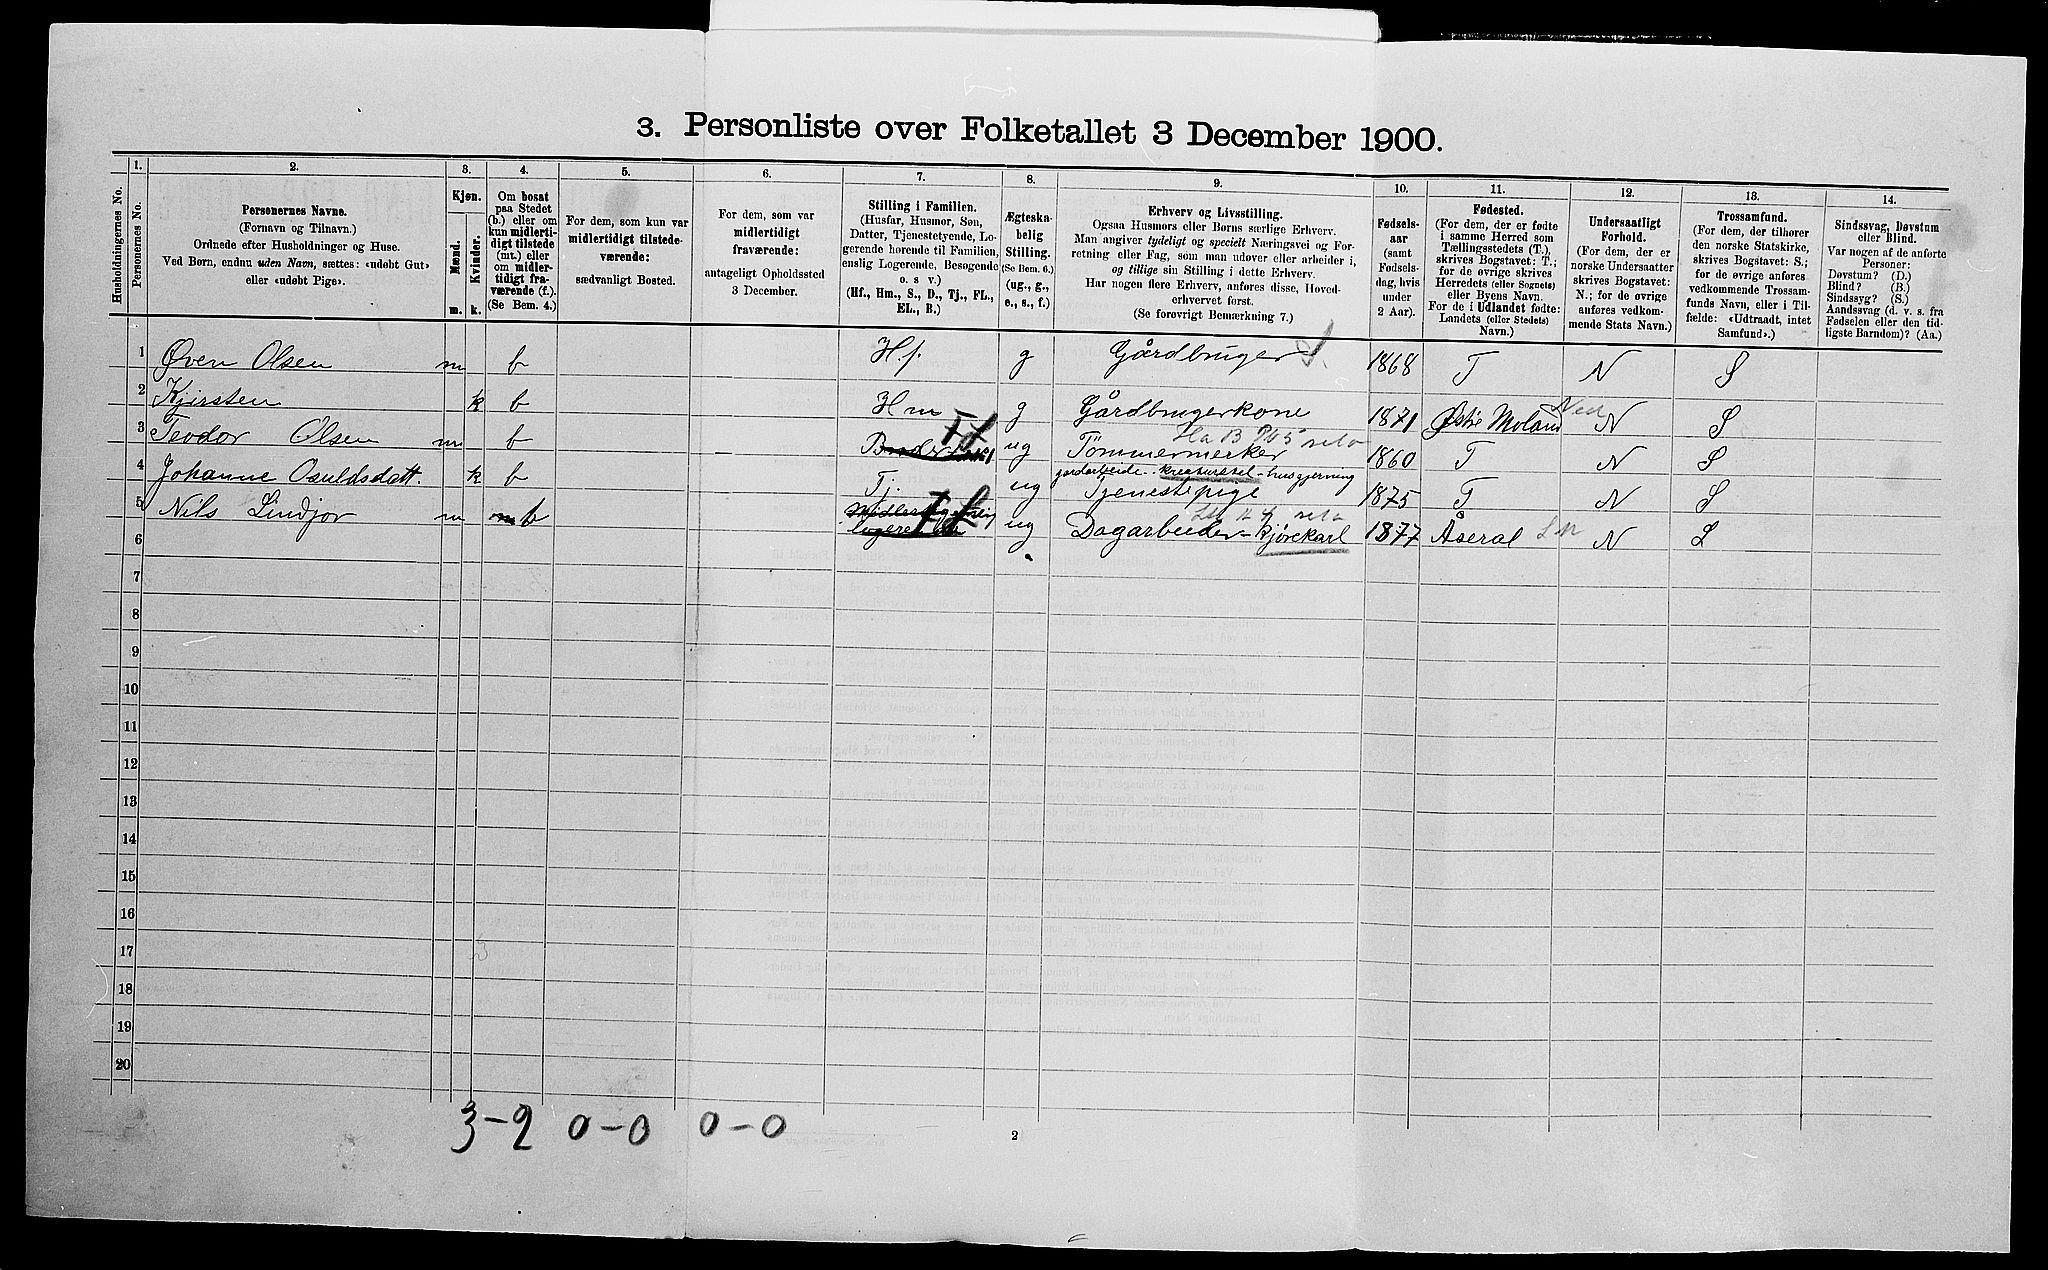 3. Personliste over Folketallet 3 December 1900.
Husholdningernes No.
1.
Personernes No.
2.
Personernes Navne.
(Fornavn og Tilnavn.)
Ordnede efter Husholdninger og Huse.
Ved Børn, endnu uden Navn, sættes: «udøbt Gut»
eller «udøbt Pige».
3.
Kjøn.
Mænd.
Kvinder.
m.
k.
4.
Om bosat
paa Stedet
(b.) eller om
kun midlerti-
digt tilstede
(mt.) eller
om midler-
tidigt fra-
værende (f.).
(Se Bem. 4.)
5.
For dem, som kun var
midlertidigt tilstede-
værende:
sædvanligt Bosted.
6.
For dem, som var
midlertidigt
fraværende:
antageligt Opholdssted
3 December.
7.
Stilling i Familien.
(Husfar, Husmor, Søn,
Datter, Tjenestetyende, Lo-
gerende hørende til Familien,
enslig Logerende, Besøgende
o. s v.)
(Hf., Hm., S., D., Tj., FL.,
EL., B.)
8.
Ægteska-
belig
Stilling.
(Se Bem. 6.)
(ug., g.,
e., s., f.)
9.
Erhverv og Livsstilling.
Ogsaa Husmors eller Børns særlige Erhverv.
Man angiver tydeligt og specielt Næringsvei og For-
retning eller Fag, som man udøver eller arbeider i,
og tillige sin Stilling i dette Erhverv.
Har nogen flere Erhverv, anføres disse, Hoved-
erhvervet først.
(Se forøvrigt Bemærkning 7.)
10.
Fødsels-
aar
(samt
Fødsels-
dag, hvis
under
2 Aar).
11.
Fødested.
(For dem, der er fødte
i samme Herred som
Tællingsstedets (T.),
skrives Bogstavet: T.;
for de øvrige skrives
Herredets (eller Sognets)
eller Byens Navn.
For de i Udlandet fødte:
Landets (eller Stedets)
Navn.)
12.
Undersaatligt
Forhold.
(For dem, der er
norske Undersaatter
skrives Bogstavet:
N.; for de øvrige
anføres vedkom-
mende Stats Navn.)
13.
Trossamfund.
(For dem, der tilhører
den norske Statskirke,
skrives Bogstavet: S.;
for de øvrige anføres
vedkommende Trossam-
funds Navn, eller i Til-
fælde: «Udtraadt, intet
Samfund».)
14.
Sindssvag, Døvstum
eller Blind.
Var nogen af de anførte
Personer:
Døvstum? (D.)
Blind? (B.)
Sindssyg? (S.)
Aandssvag (d. v. s. fra
Fødselen eller den tid-
ligste Barndom)? (Aa.)
1 Øven Olsen m b H.f. g Gårdbruger S. 1868 T N S
2 Kjirsten k b Hm g Gårdbrugerkone 1871 Østre Moland Ned N S
3 Teodor Olsen m b FL ug Tömmermerker 1860 T N S
jordarbeide - kreaturstel - husgjerning
4 Johanne Osuldsdatt. k b Tj. ug Tjenestepige 1875 T N S
5 Nils Lindjor m b FL ug Dagarbeider - kjörekarl 1877 Åseral N S
6
7
8
9
10
11
12
13
14
15
16
17
18
19
20
3-2 0-0 0-0
2